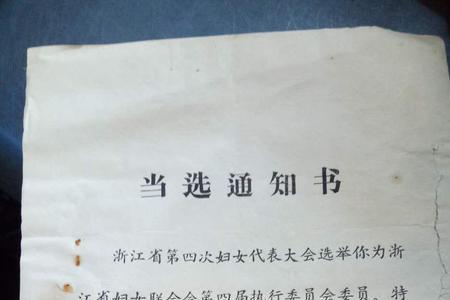 当选通知书
浙江省第四次妇女代表大会选举你为浙
江省妇女联合会第四届执行委员会委员，特